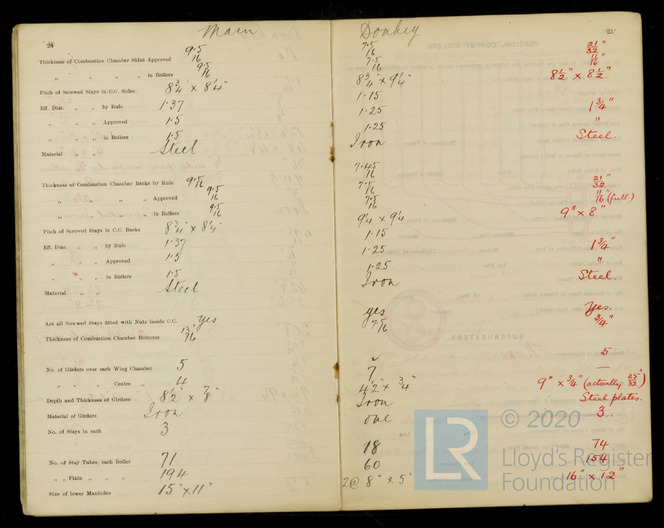 24 Main Donkey 25
9.5/16 7.5/16 21/32"
Thickness of Combustion Chamber Sides Approved 7.5/16 11/16"
„ „ „ „ in Boilers 9.5/16 8 3/4 × 9 1/4" 8 1/2" × 8 1/2"
Pitch of Screwed Stays in C.C. Sides 8 3/4" × 8 1/4"
Eff. Dia. „ „ by Rule 1.37 1.15
„ „ „ Approved 1.5 1.25 1 3/4"
„ „ „ in Boilers 1.5 1.25 "
Material „ „ Steel Iron Steel.
Thickness of Combustion Chamber Backs by Rule 9.5/16 7.45/16 21/32"
„ „ „ „ Approved 9.5/16 7.5/16 11/16" (full)
„ „ „ „ in Boilers 9.5/16 7.5/16
Pitch of Screwed Stays in C.C. Backs 8 3/4" × 8 1/4" 9 1/4 × 9 1/4 9" × 8"
Eff. Dia. „ „ by Rule 1.37 1.15
„ „ „ Approved 1.5 1.25 1 3/4"
„ „ „ in Boilers 1.5 1.25 "
Material Steel Iron Steel.
Are all Screwed Stays fitted with Nuts inside C.C. Yes yes Yes.
Thickness of Combustion Chamber Bottoms 13/16" 7.5/16 3/4"
No. of Girders over each Wing Chamber 5 5
„ „ „ Centre „ 4 7 —
Depth and Thickness of Girders 8 1/2" × 7/8" 4 1/2" × 3/4" 9" × 3/4" (actually 25/32")
Material of Girders Iron Iron Steel plates.
No. of Stays in each 3 one 3
No. of Stay Tubes, each Boiler 71 18 74
„ „ Plain „ „ „ 194 60 154
Size of lower Manholes 15" × 11" 2 @ 8" × 5" 16" × 12"
© 2020
LR
Lloyd's Register
Foundation